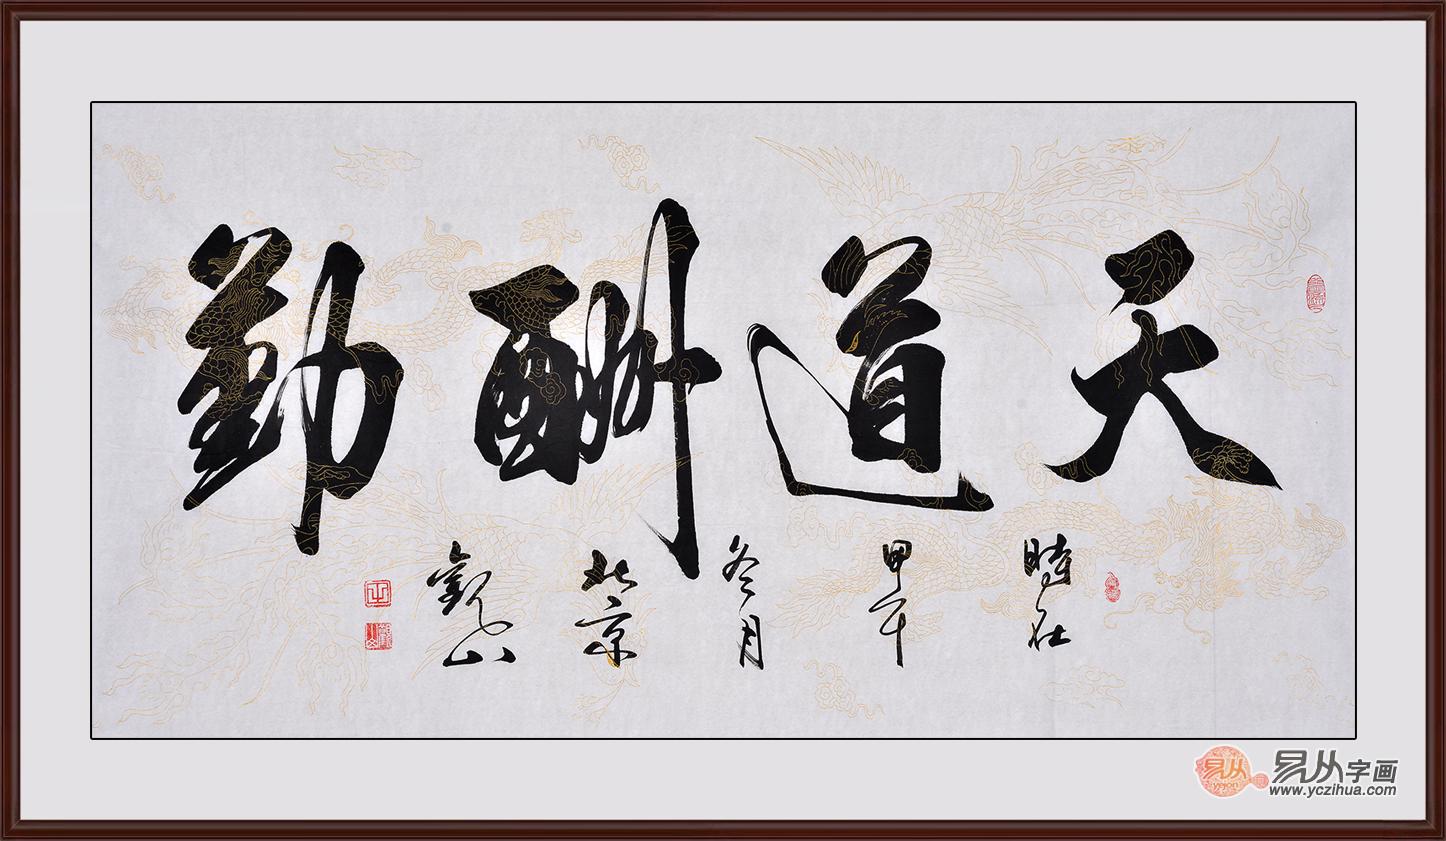 天道酬勤
時在甲午冬月北京觀山
易从
yojon
易从字画
www.yczihua.com